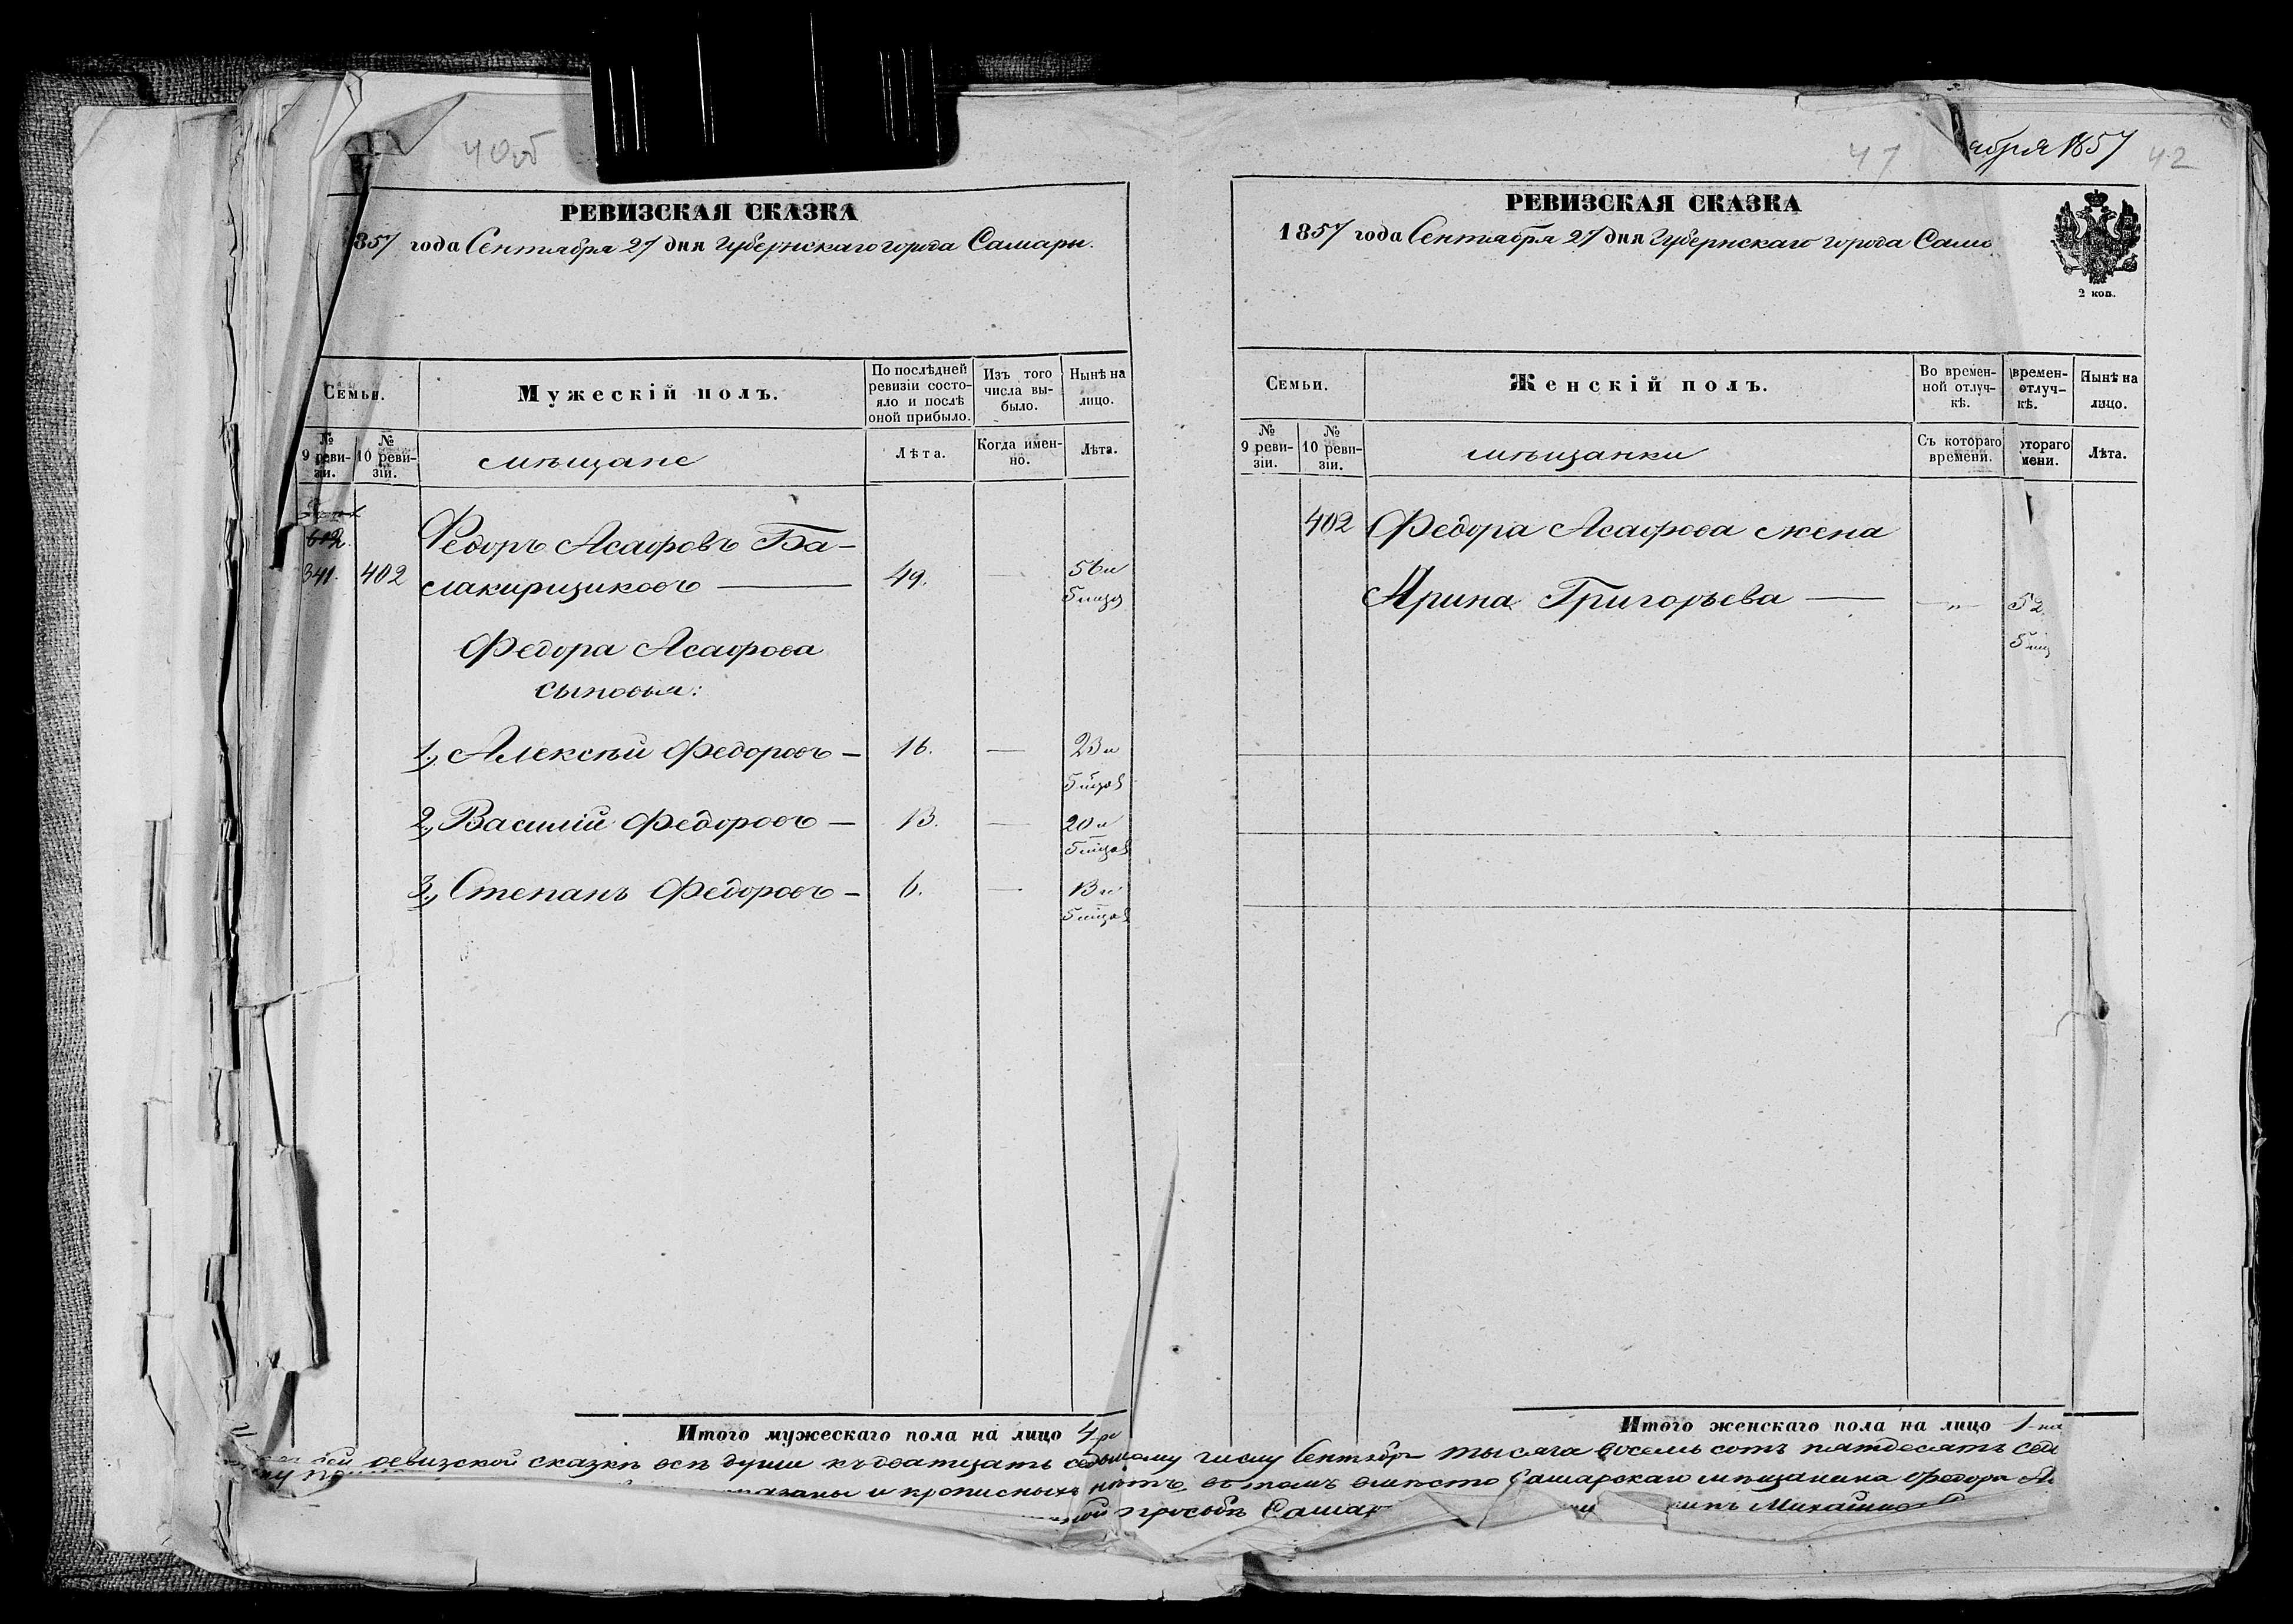 40об
РЕВИЗСКАЯ СКАЗКА
857 года Сентября 27 дня Губернскаго города Самары.
Семьи.
Мужескій полъ.
По послѣдней ревизіи состо-
яло и послѣ оной прибыло.
Изъ того числа вы-
было.
Нынѣ на лицо.
№ 9 реви-
зіи.
№ 10 реви-
зіи.
мѣщане
Лѣта.
Когда имен-
но.
Лѣта.
602.
341. 402
Федоръ Асафовъ Ба-
слакирщиковъ — 49. — 56 и
5 мцов
Федора Асафова
сыновья:
1, Алексѣй Федоровъ — 16. — 23 и
5 мцов
2, Василій Федоровъ — 13. — 20 и
5 мцов
3, Степанъ Федоровъ — 6. — 13 и
5 мцов
Итого мужескаго пола на лицо 4-ре
ября 1857
47
42
РЕВИЗСКАЯ СКАЗКА
1857 года Сентября 27 дня Губернскаго города Сама
2 коп.
Семьи.
Женскій полъ.
Во времен-
ной отлуч-
кѣ.
времен-
отлуч-
кѣ.
Нынѣ на
лицо.
№ 9 реви-
зіи.
№ 10 реви-
зіи.
мѣщанки
Съ котораго
времени.
отораго
мени.
Лѣта.
402 Федора Асафова жена
Ирина Григорьева — „ 52
5 мц
Итого женскаго пола на лицо 1-на
сей ревизской сказкѣ всѣ души къ двадцать седьмому числу Сентября тысяча восемь сотъ пятдесятъ седь
показаны и прописныхъ нѣтъ, въ томъ вмѣсто Самарскаго мѣщанина Федора А
ной просьбѣ Самар Михайловъ